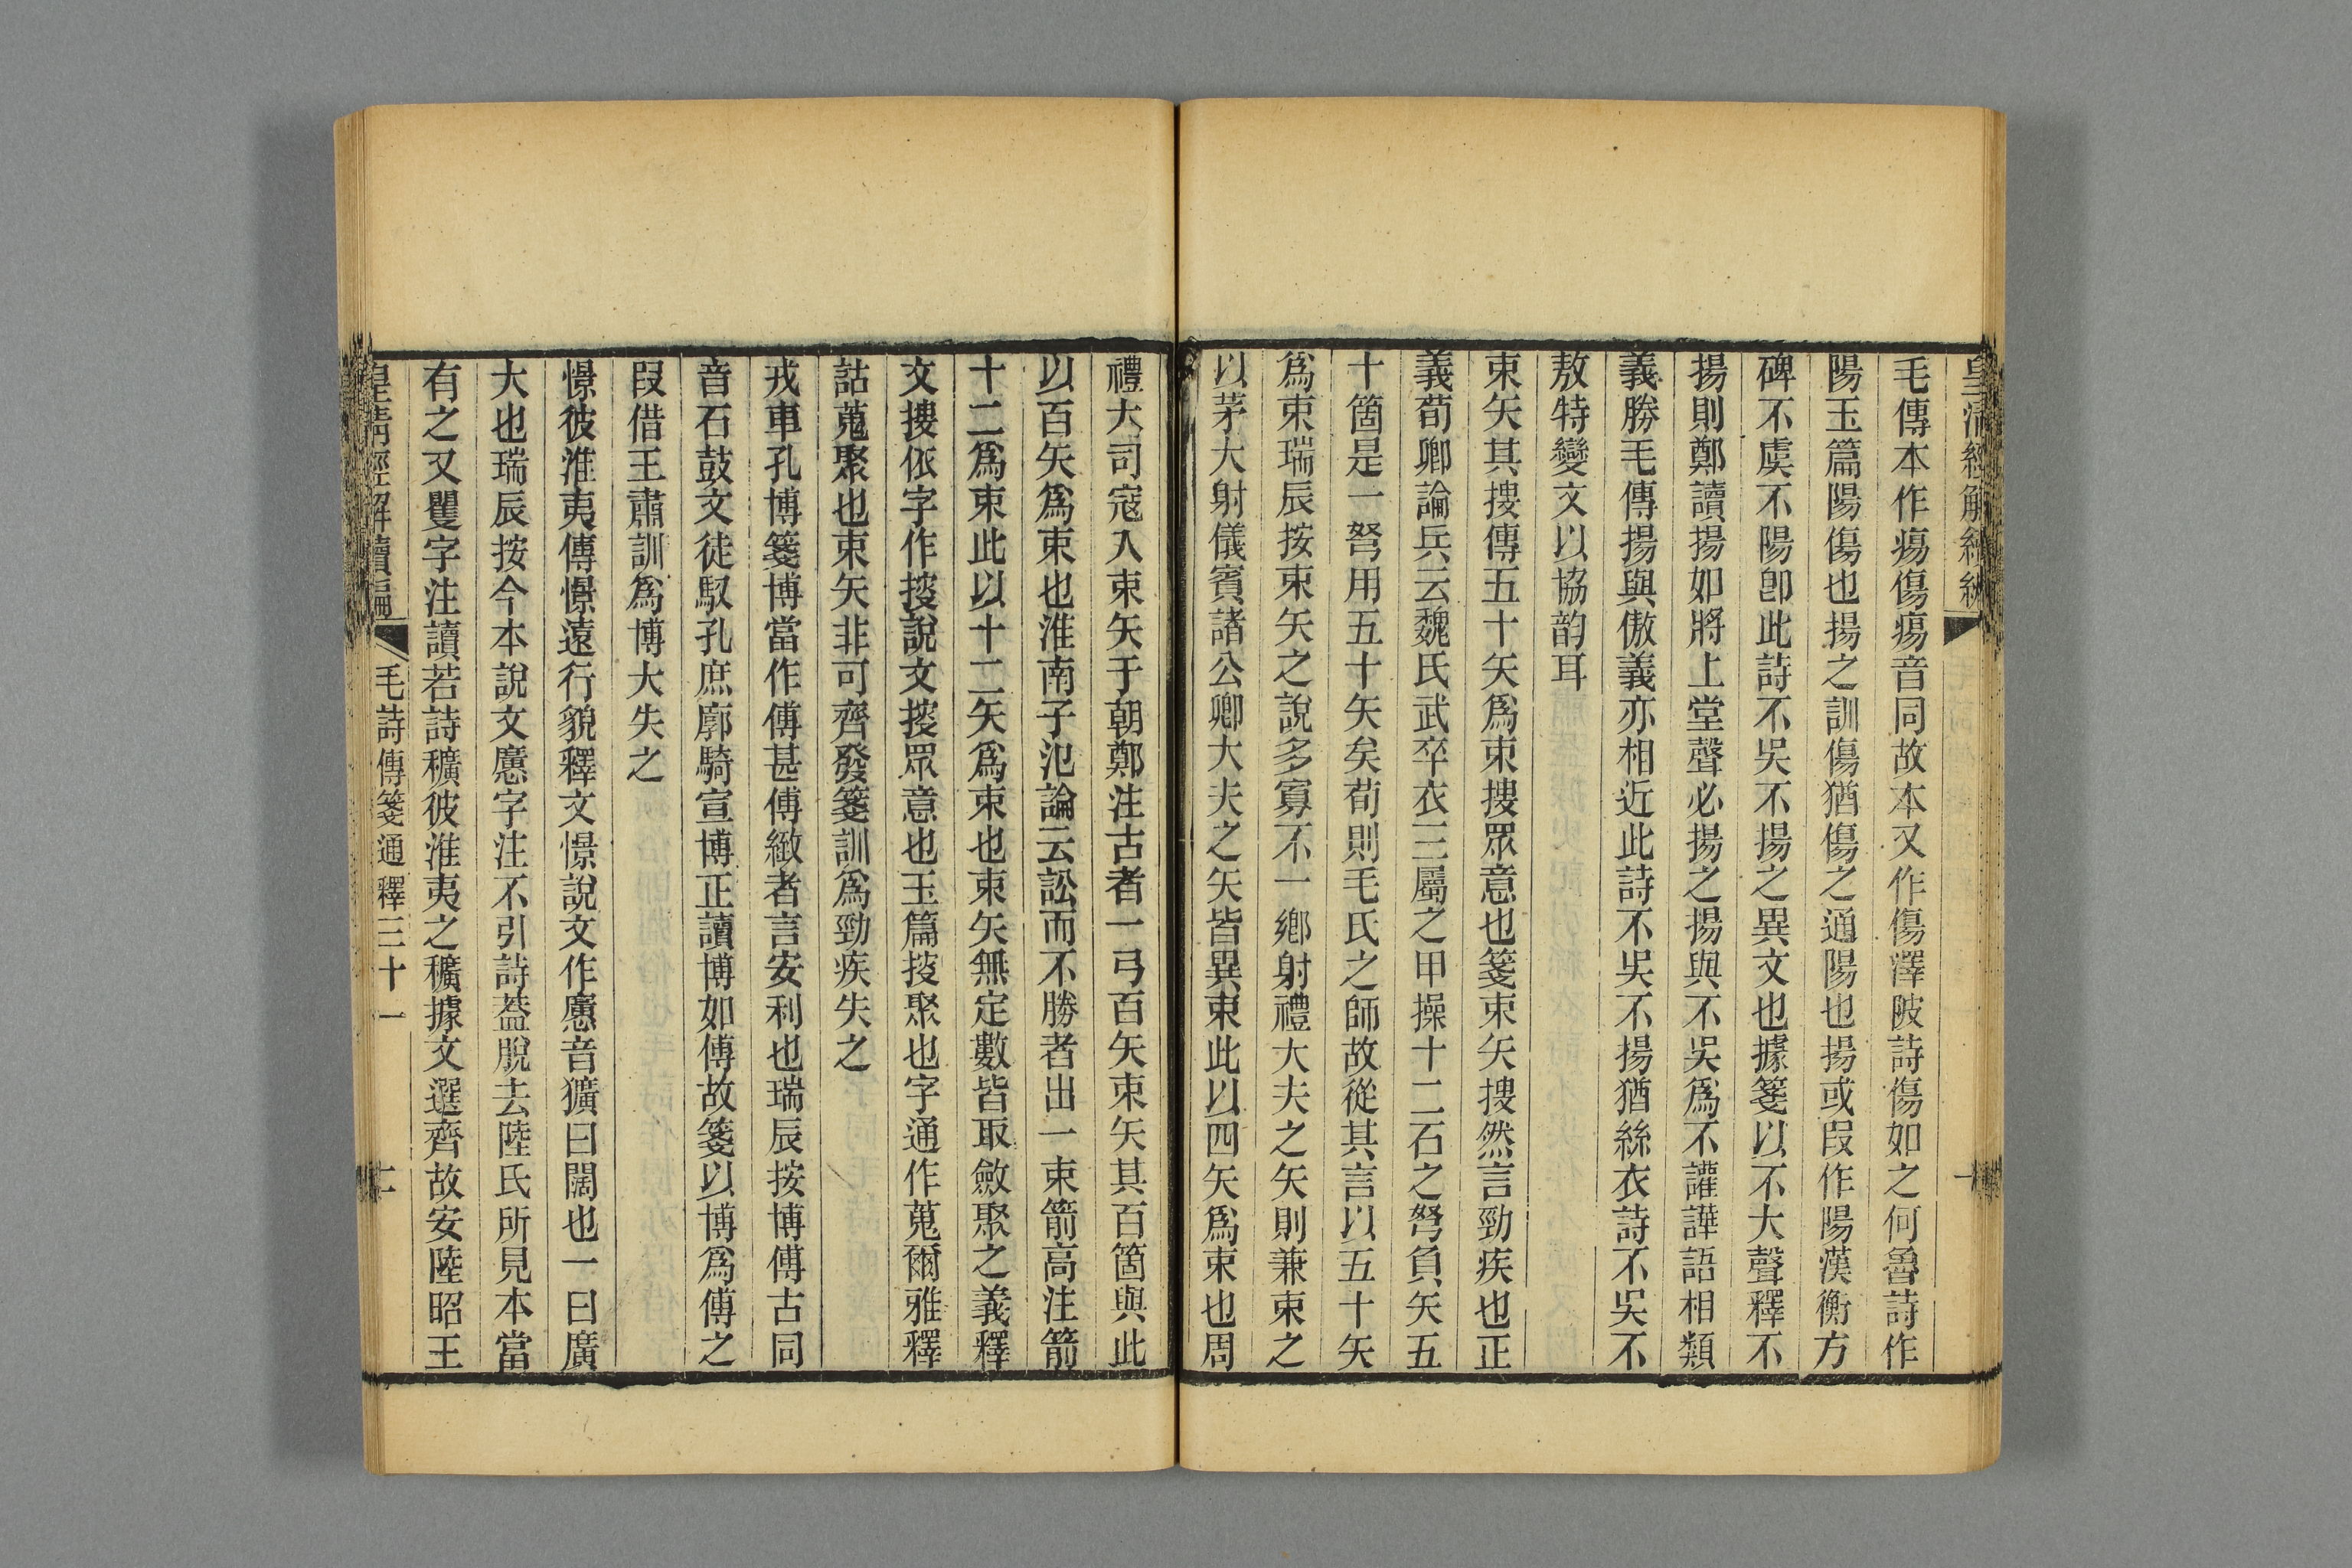 皇清經解續編
毛傳本作瘍傷瘍音同故本又作傷澤陂詩傷如之何魯詩作
陽玉篇陽傷也揚之訓傷猶傷之通陽也揚或叚作陽漢衡方
碑不虞不陽卽此詩不吳不揚之異文也據箋以不大聲釋不
揚則鄭讀揚如將上堂聲必揚之揚與不吳爲不讙譁語相類
義勝毛傳揚與傲義亦相近此詩不吳不揚猶絲衣詩不吳不
敖特變文以協韵耳
束矢其搜傳五十矢爲束搜眾意也箋束矢搜然言勁疾也正
義荀卿論兵云魏氏武卒衣三屬之甲操十二石之弩負矢五
十箇是一弩用五十矢矣荀則毛氏之師故從其言以五十矢
爲束瑞辰按束矢之說多寡不一鄉射禮大夫之矢則兼束之
以茅大射儀賓諸公卿大夫之矢皆異束此以四矢爲束也周
禮大司寇入束矢于朝鄭注古者一弓百矢束矢其百箇與此
以百矢爲束也淮南子氾論云訟而不勝者出一束箭高注箭
十二爲束此以十二矢爲束也束矢無定數皆取斂聚之義釋
文搜依字作㨃說文㨃眾意也玉篇㨃聚也字通作蒐爾雅釋
詁蒐聚也束矢非可齊發箋訓爲勁疾失之
戎車孔博箋博當作傅甚傅緻者言安利也瑞辰按博傅古同
音石鼓文徒馭孔庶廓騎宣博正讀博如傅故箋以博爲傅之
叚借王肅訓爲博大失之
憬彼淮夷傳憬遠行貌釋文憬說文作懬音獷曰闊也一曰廣
大也瑞辰按今本說文懬字注不引詩葢脫去陸氏所見本當
有之又矍字注讀若詩穬彼淮夷之穬據文選齊故安陸昭王
皇清經解續編
毛詩傳箋通釋三十一
十